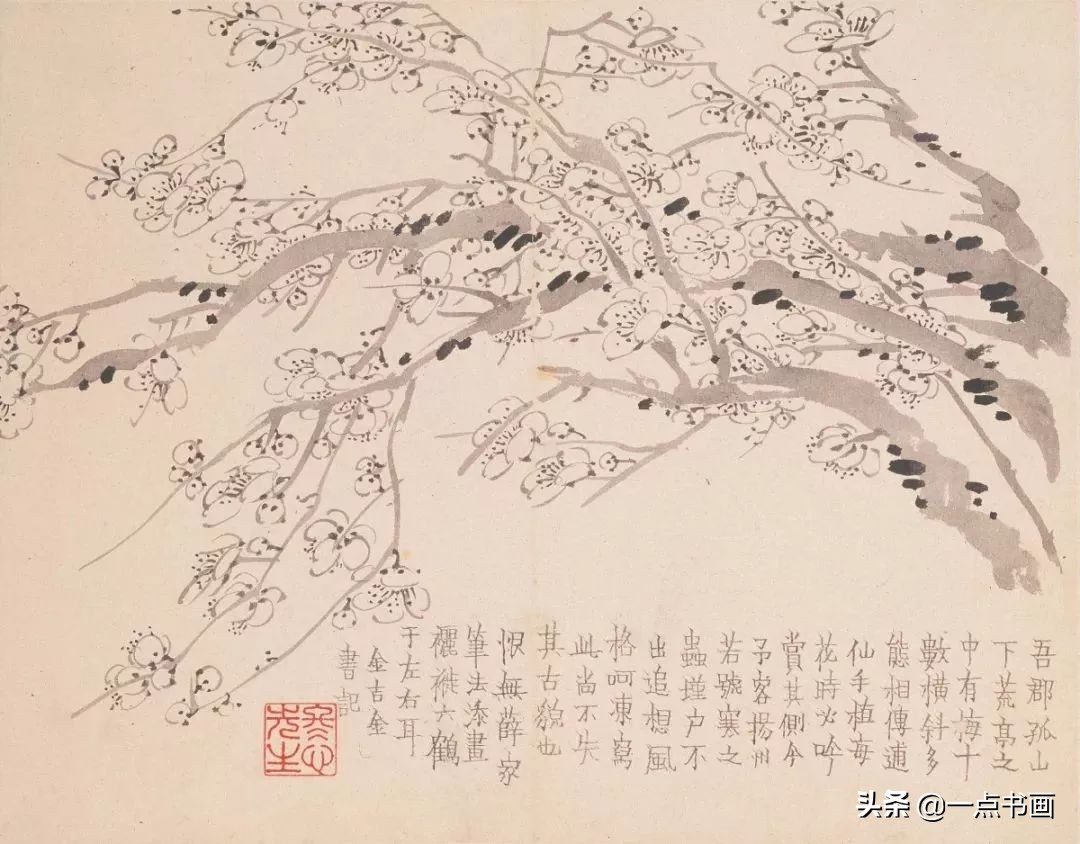 吾郡孤山
下荒亭之
中有梅十
數橫斜多
態相傳逋
仙手植每
花時必吟
賞其側今
予客揚州
若號寒之
蟲墐户不
出追想風
格呵凍寫
此尚不失
其古貌也
恨無薛家
筆法添畫
褵褷六鶴
于左右耳
金吉金
書記
冬心先生
头条 @一点书画